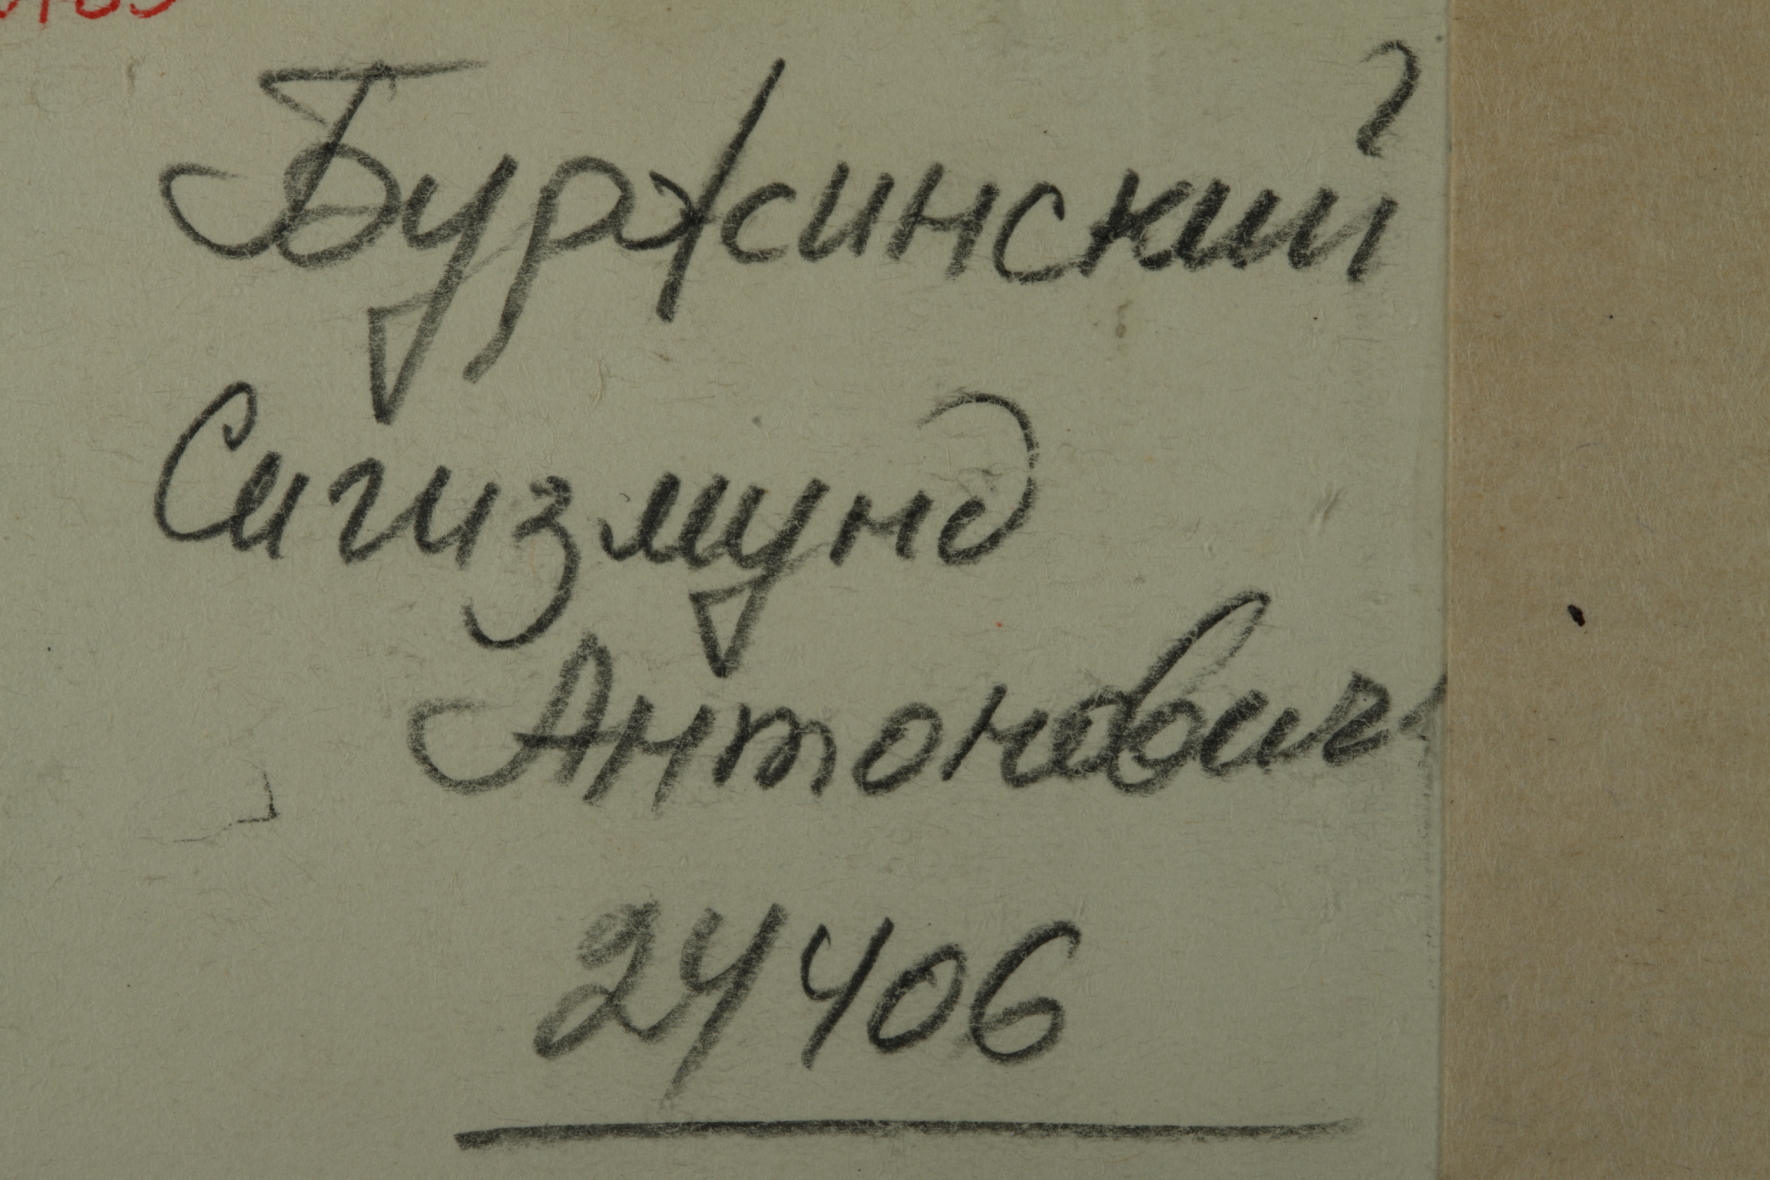 Буржинский
Сигизмунд
Антонович
24406